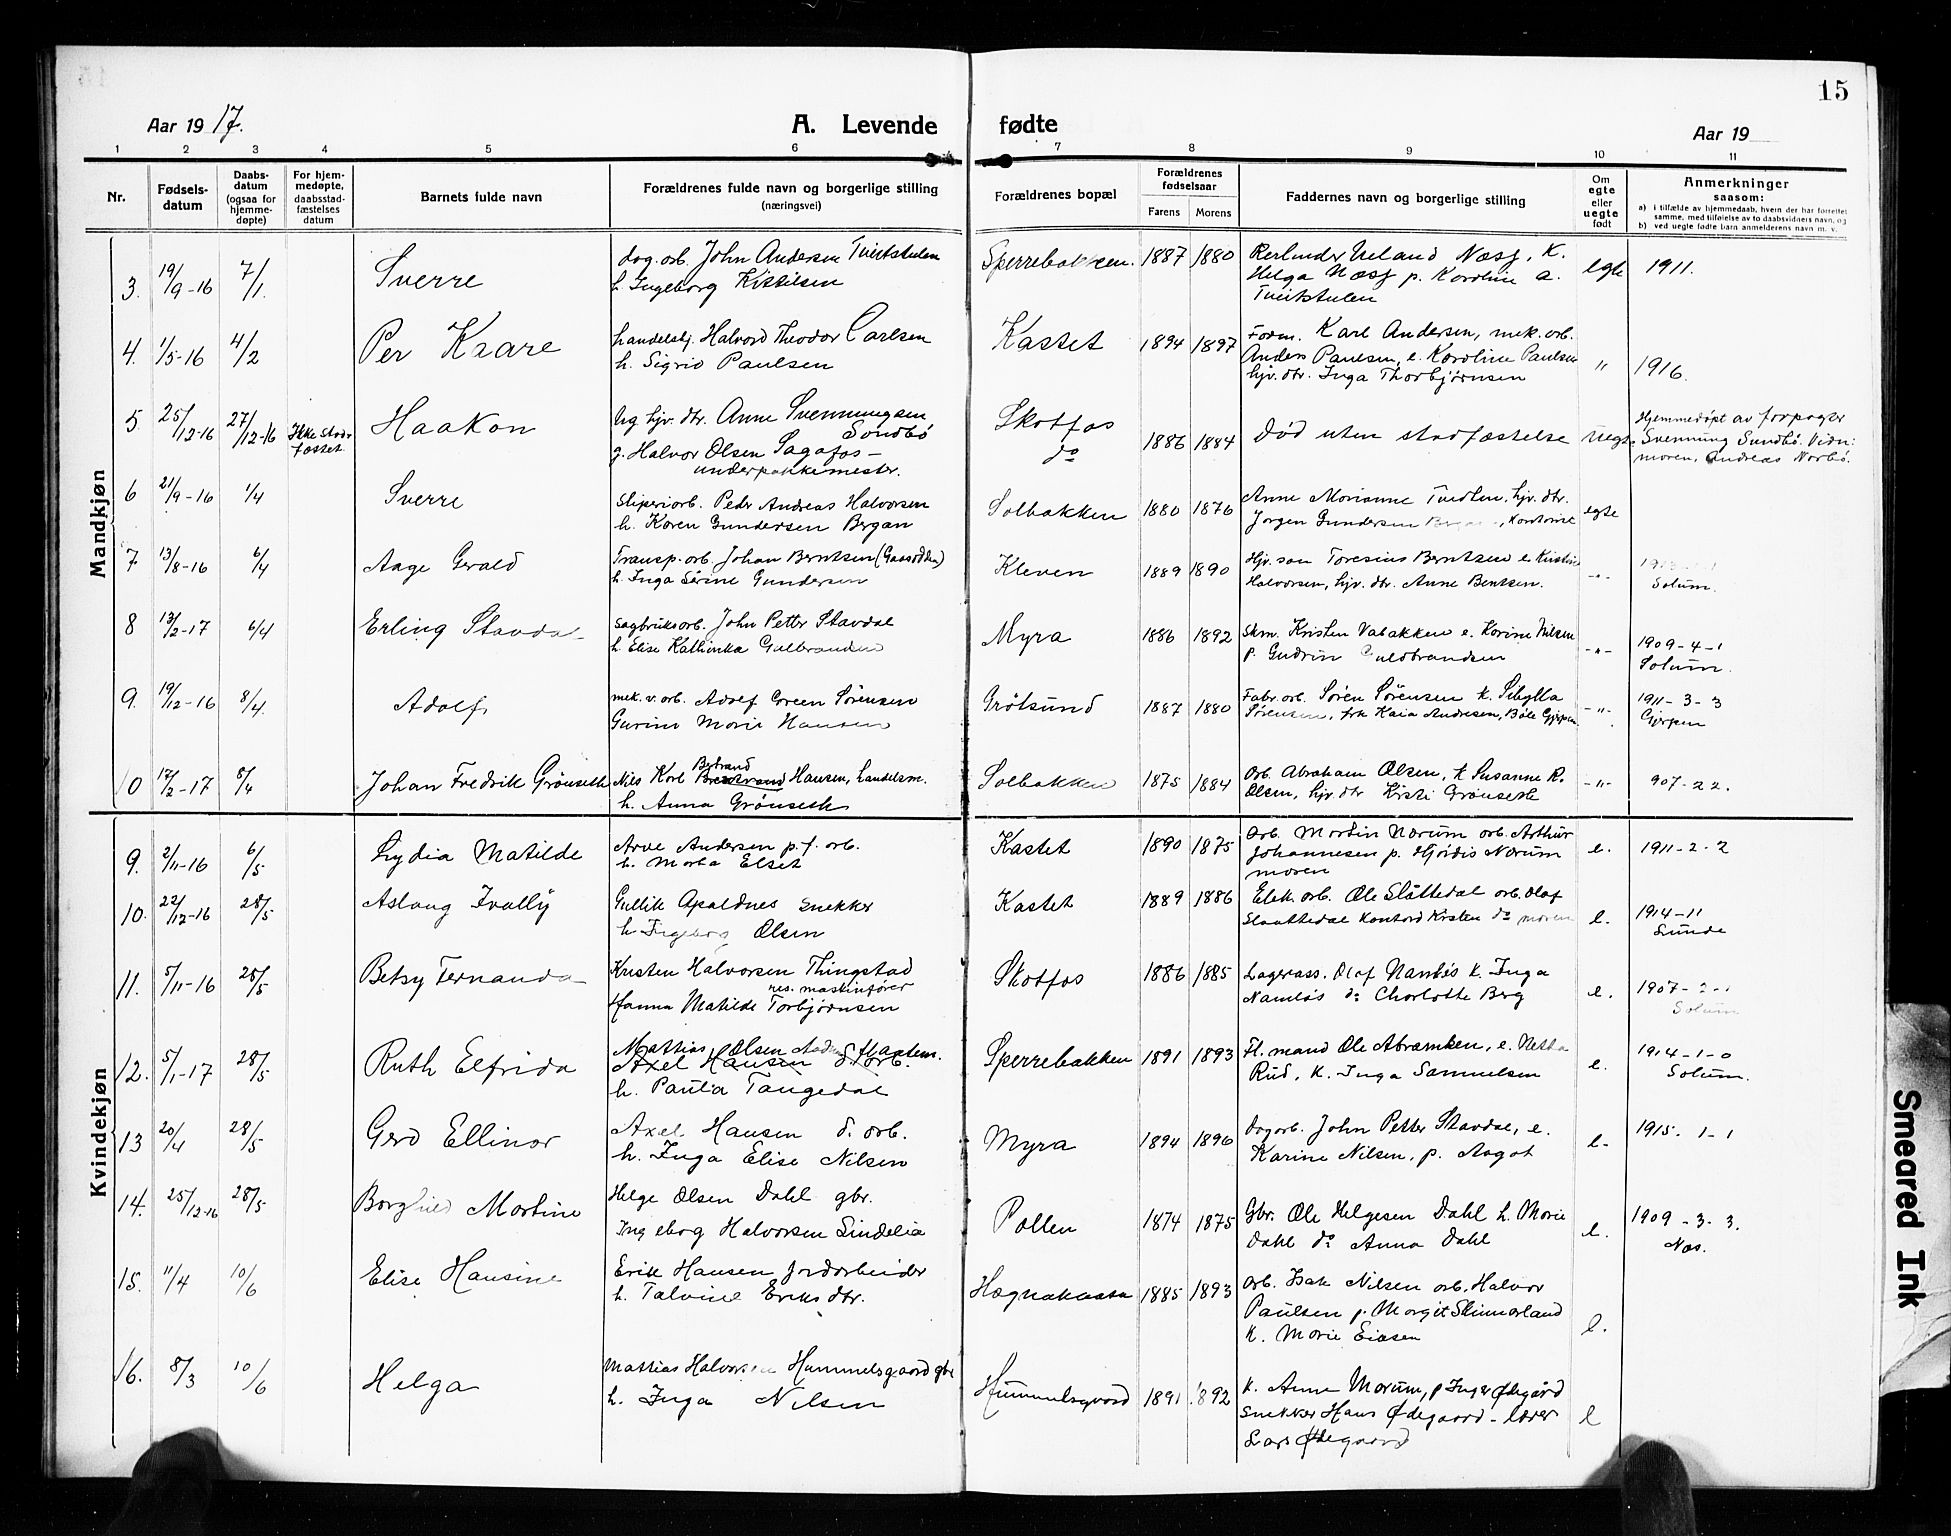 15
Aar 19 17.
A. Levende fødte
Aar 19
1 2 3 4 5 6 7 8 9 10 11
Nr.
Fødsels-
datum
Daabs-
datum
(ogsaa for
hjemme-
døpte)
For hjem-
medøpte,
daabsstad-
fæstelses
datum
Barnets fulde navn
Forældrenes fulde navn og borgerlige stilling
(næringsvei)
Forældrenes bopæl
Forældrenes
fødselsaar
Farens Morens
Faddernes navn og borgerlige stilling
Om
egte
eller
uegte
født
Anmerkninger
saasom:
a) i tilfælde av hjemmedaab, hvem der har forrettet
samme, med tilføielse av to daabsvidners navn, og
b) ved uegte fødte barn anmelderens navn m. v.
Mandkjøn
3. 19/9-16 7/1. Sverre
dag.arb. John Andersen Tveitstulen
h. Ingeborg Kittilsen
Sperrebakken. 1887 1880
Helga Næss p. Karoline a.
Tveitstulen
egte 1911.
4. 1/5-16 4/2 Per Kaare
handelsbj. Halvord Theodor Carlsen
h. Sigrid Paulsen
Kastet 1894 1897
Form. Karl Andersen, mek. arb.
Anders Paulsen, e. Karoline Paulsen
hjv. dtr. Inga Thorbjørnsen
" 1916.
5. 25/12-16 27/12-16 Ikke stad-
fæstet.
Haakon
Ug. hjv. dtr. Anne Svenningsen
Sundbö
g. Halvor Olsen Sagafos -
underpakkemester.
Skotfos
do
1886 1884 Död uten stadfæstelse uegte
Hjemmedöpt av forpagter
Svenning Sundbö. Vidn:
moren, Andreas Norbö.
6 21/9-16 1/4 Sverre
Sliperiarb. Peder Andreas Halvorsen
h. Karen Gundersen Bergan
Solbakken 1880 1876
Anne Marianne Tvedten, hjv. dtr.
Jørgen Gundersen
egte
7 13/8-16 6/4 Aage Gerald
Transp. arb. Johan Berntsen (Gaasodden)
h. Inga Serine Gundersen
Kleven 1889 1890
Hjv. søn Toresius Berntsen e. Kristine
Halvorsen, hjv. dtr. Anne Bentsen.
-"-
Solum.
8 13/2-17 6/4 Erling Stavdal
Sagbruksarb. John Petter Stavdal
h. Elise Kathinka Gulbrandsen
Myra 1886 1892
Skm. Kristen Vabakken e. Karine Nilsen
p. Gudrun Guldbrandsen
-"- 1909-4-1
Solum.
9. 19/12-16 8/4. Adolf
mek. v. arb. Adolf Green Sørensen
Gurine Marie Hansen
Grötsund 1887 1880
Fabr. arb. Søren Sørensen k. Sibylla
Sørensen, frk Kaia Andresen, Böle Gjerpen.
-"- 1911-3-3
Gjerpen
10 17/2-17 8/4 Johan Fredrik Grönseth
Betrand
Nils Karl Hansen, handelsm.
h. Anna Grönseth
Solbakken 1875 1884
Arb. Abraham Olsen, k Susanne R.
Olsen, hjv. dtr Kirsti Grönseth
-"- 907-22.
Kvindekjøn
9. 2/11-16 6/5 Lydia Matilde
Arve Andersen p. f. arb.
h. Marta Elset
Kastet 1890 1875
Arb. Martin Nærum arb. Arthur
Johannesen p. Hjördis Nærum
moren
e. 1911-2-2
10. 22/12-16 28/5 Aslaug Ivally
Gullik Apaldnes snekker
h. Ingeborg Olsen
Kastet 1889 1886
Elek. arb. Ole Slåttedal arb. Olaf
Slaattedal kontord Kirsten do moren
e. 1914-11
Sunde
11. 5/11-16 28/5 Betsy Fernanda
Kristen Halvorsen Thingstad
res. maskinfører
Hanna Matilde Torbjörnsen
Skotfos 1886 1885
Lagerass. Olaf Namlös k. Inga
Namlös do Charlotte Berg
e. 1907-2-1
Solum
12. 5/1-17 28/5 Ruth Elfrida
Mattias Olsen
Axel Hansen d. arb.
h. Paula Tangedal
Sperrebakken 1891 1893
Fl. mand Ole Abramsen, e. Netta
Rud, k. Inga Samuelsen
e. 1914-1-0
Solum.
13 20/4 28/5 Gerd Ellinor
Axel Hansen d. arb.
h. Inga Elise Nilsen
Myra 1894 1896
Dagarb. John Petter Stavdal, e.
Karine Nilsen, p. Aagot
e- 1915. 1-1
14. 25/12-16 28/5 Borghild Martine
Helge Olsen Dahl gbr.
Ingeborg Halvorsen Lindelia
Pollen 1874 1875
Gbr. Ole Helgesen Dahl h. Marie
Dahl do Anna Dahl
e. 1909-3-3.
Næs.
15. 11/4 10/6 Elise Hansine
Erik Hansen Jordarbeider
h. Talvine Eriks dtr.
1885 1893
Arb. Isak Nilsen arb. Halvor
Paulsen p. Margit Skinnarland
k. Marie Eiasen
e.
16. 8/3 10/6 Helga
Mattias Halvorsen Hummelsgaard gbr
h. Inga Nilsen
Hummelsgaard 1891 1892
k. Anne Marum, p Inger Ødegård
snekker Hans Ødegaard - lærer
Lars Ødegaard
e
Smeared Ink